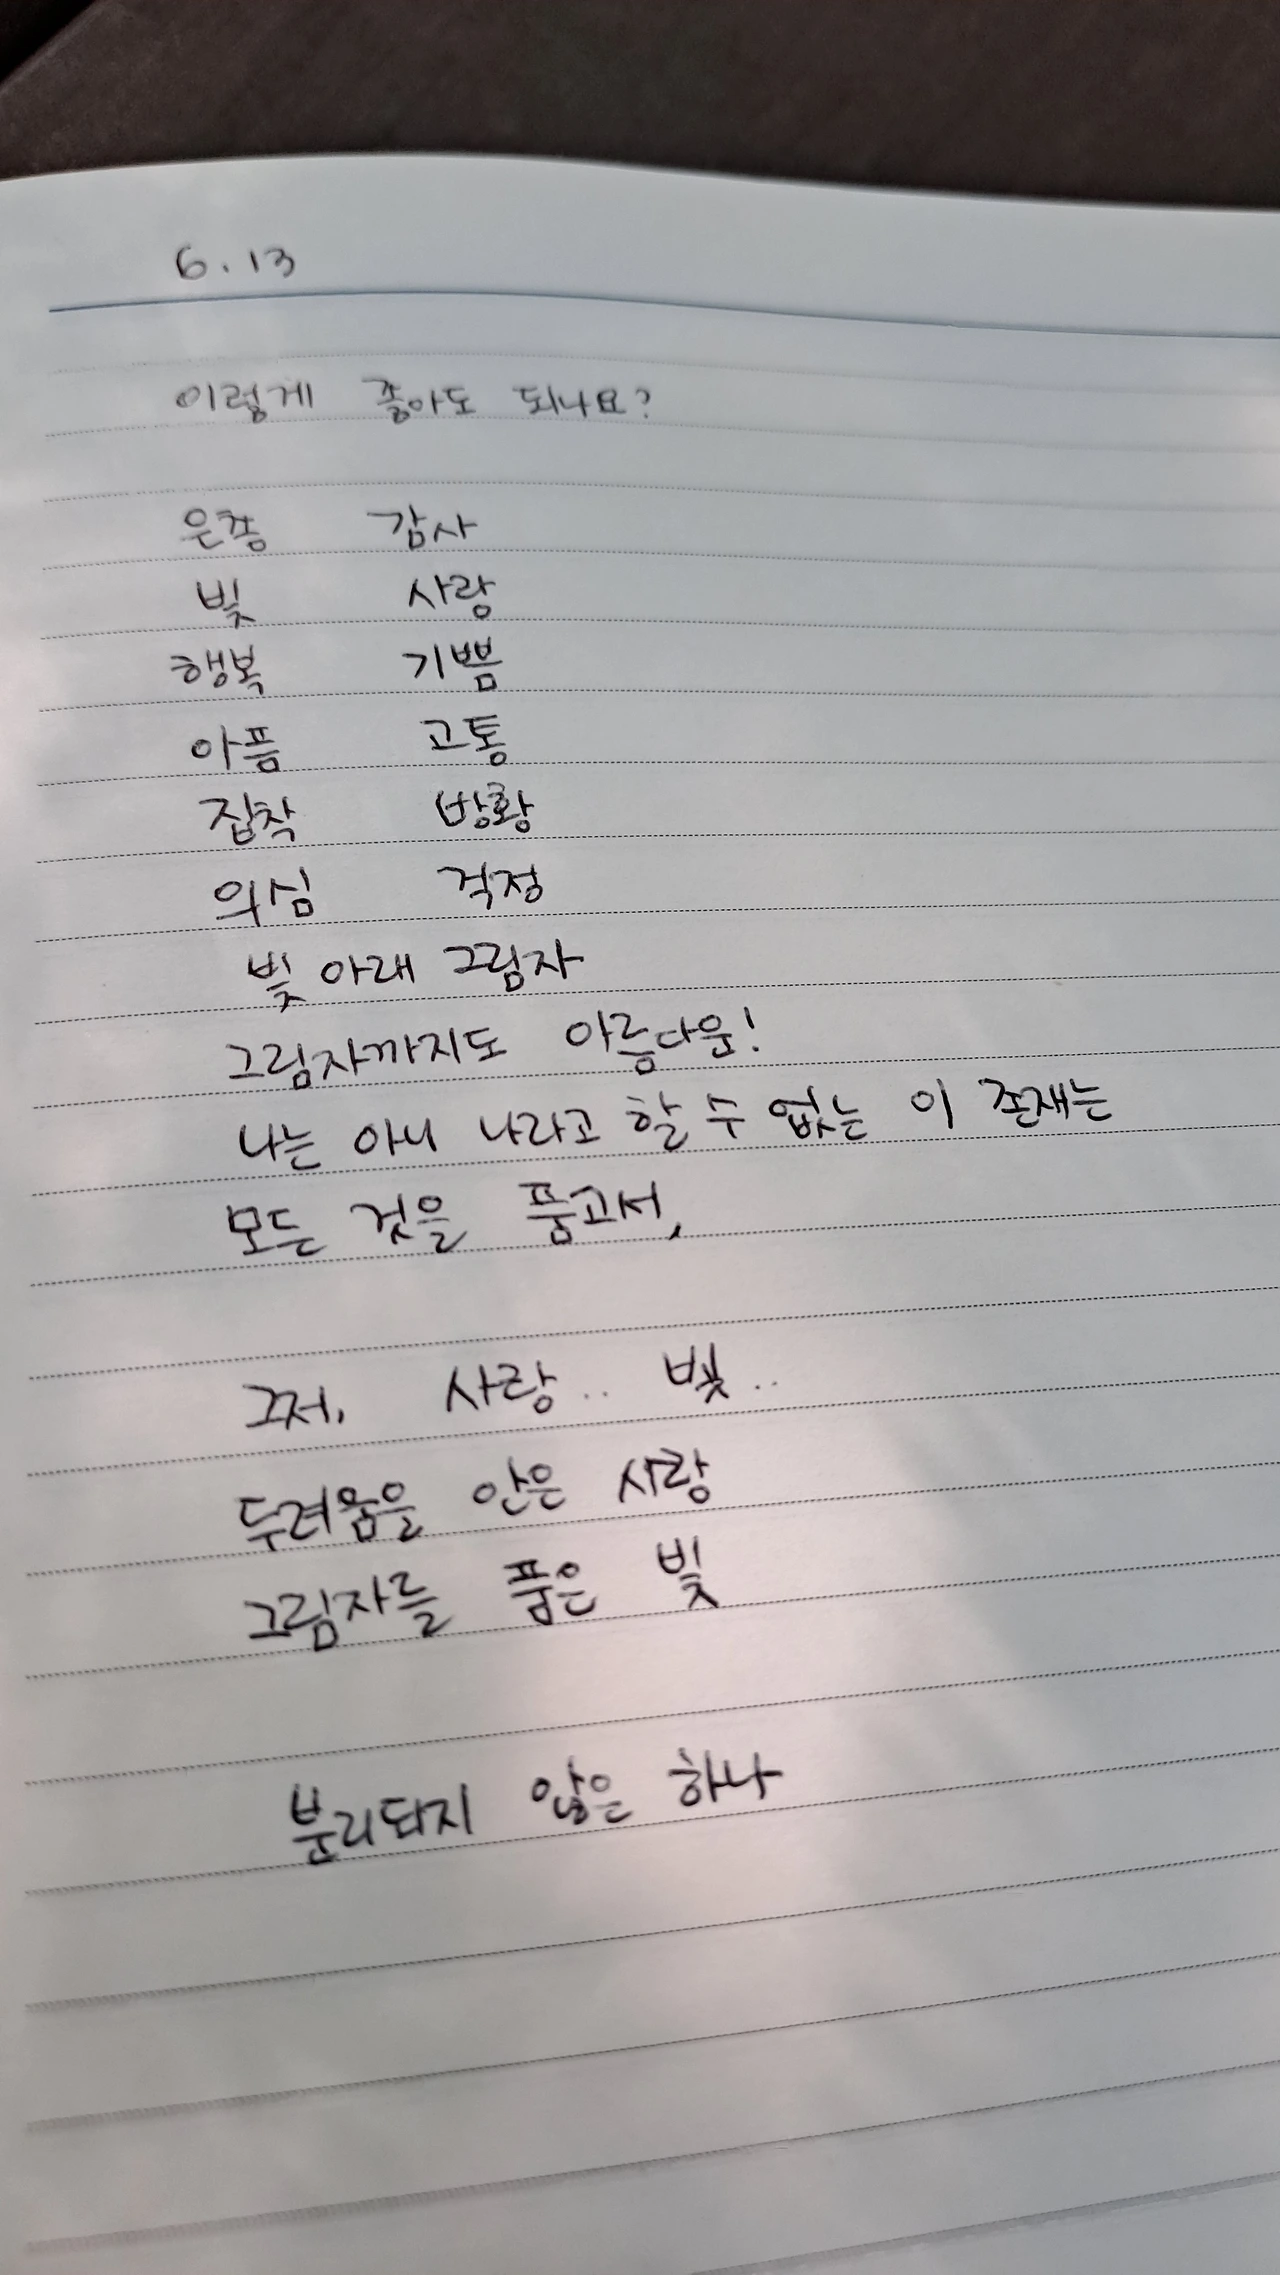 6.13
이렇게 좋아도 되나요?
은총 감사
빛 사랑
행복 기쁨
아픔 고통
집착 방황
의심 걱정
빛 아래 그림자
그림자까지도 아름다운!
나는 아니 나라고 할 수 없는 이 존재는
모든 것을 품고서,
그저, 사랑.. 빛..
두려움을 안은 사랑
그림자를 품은 빛
분리되지 않은 하나